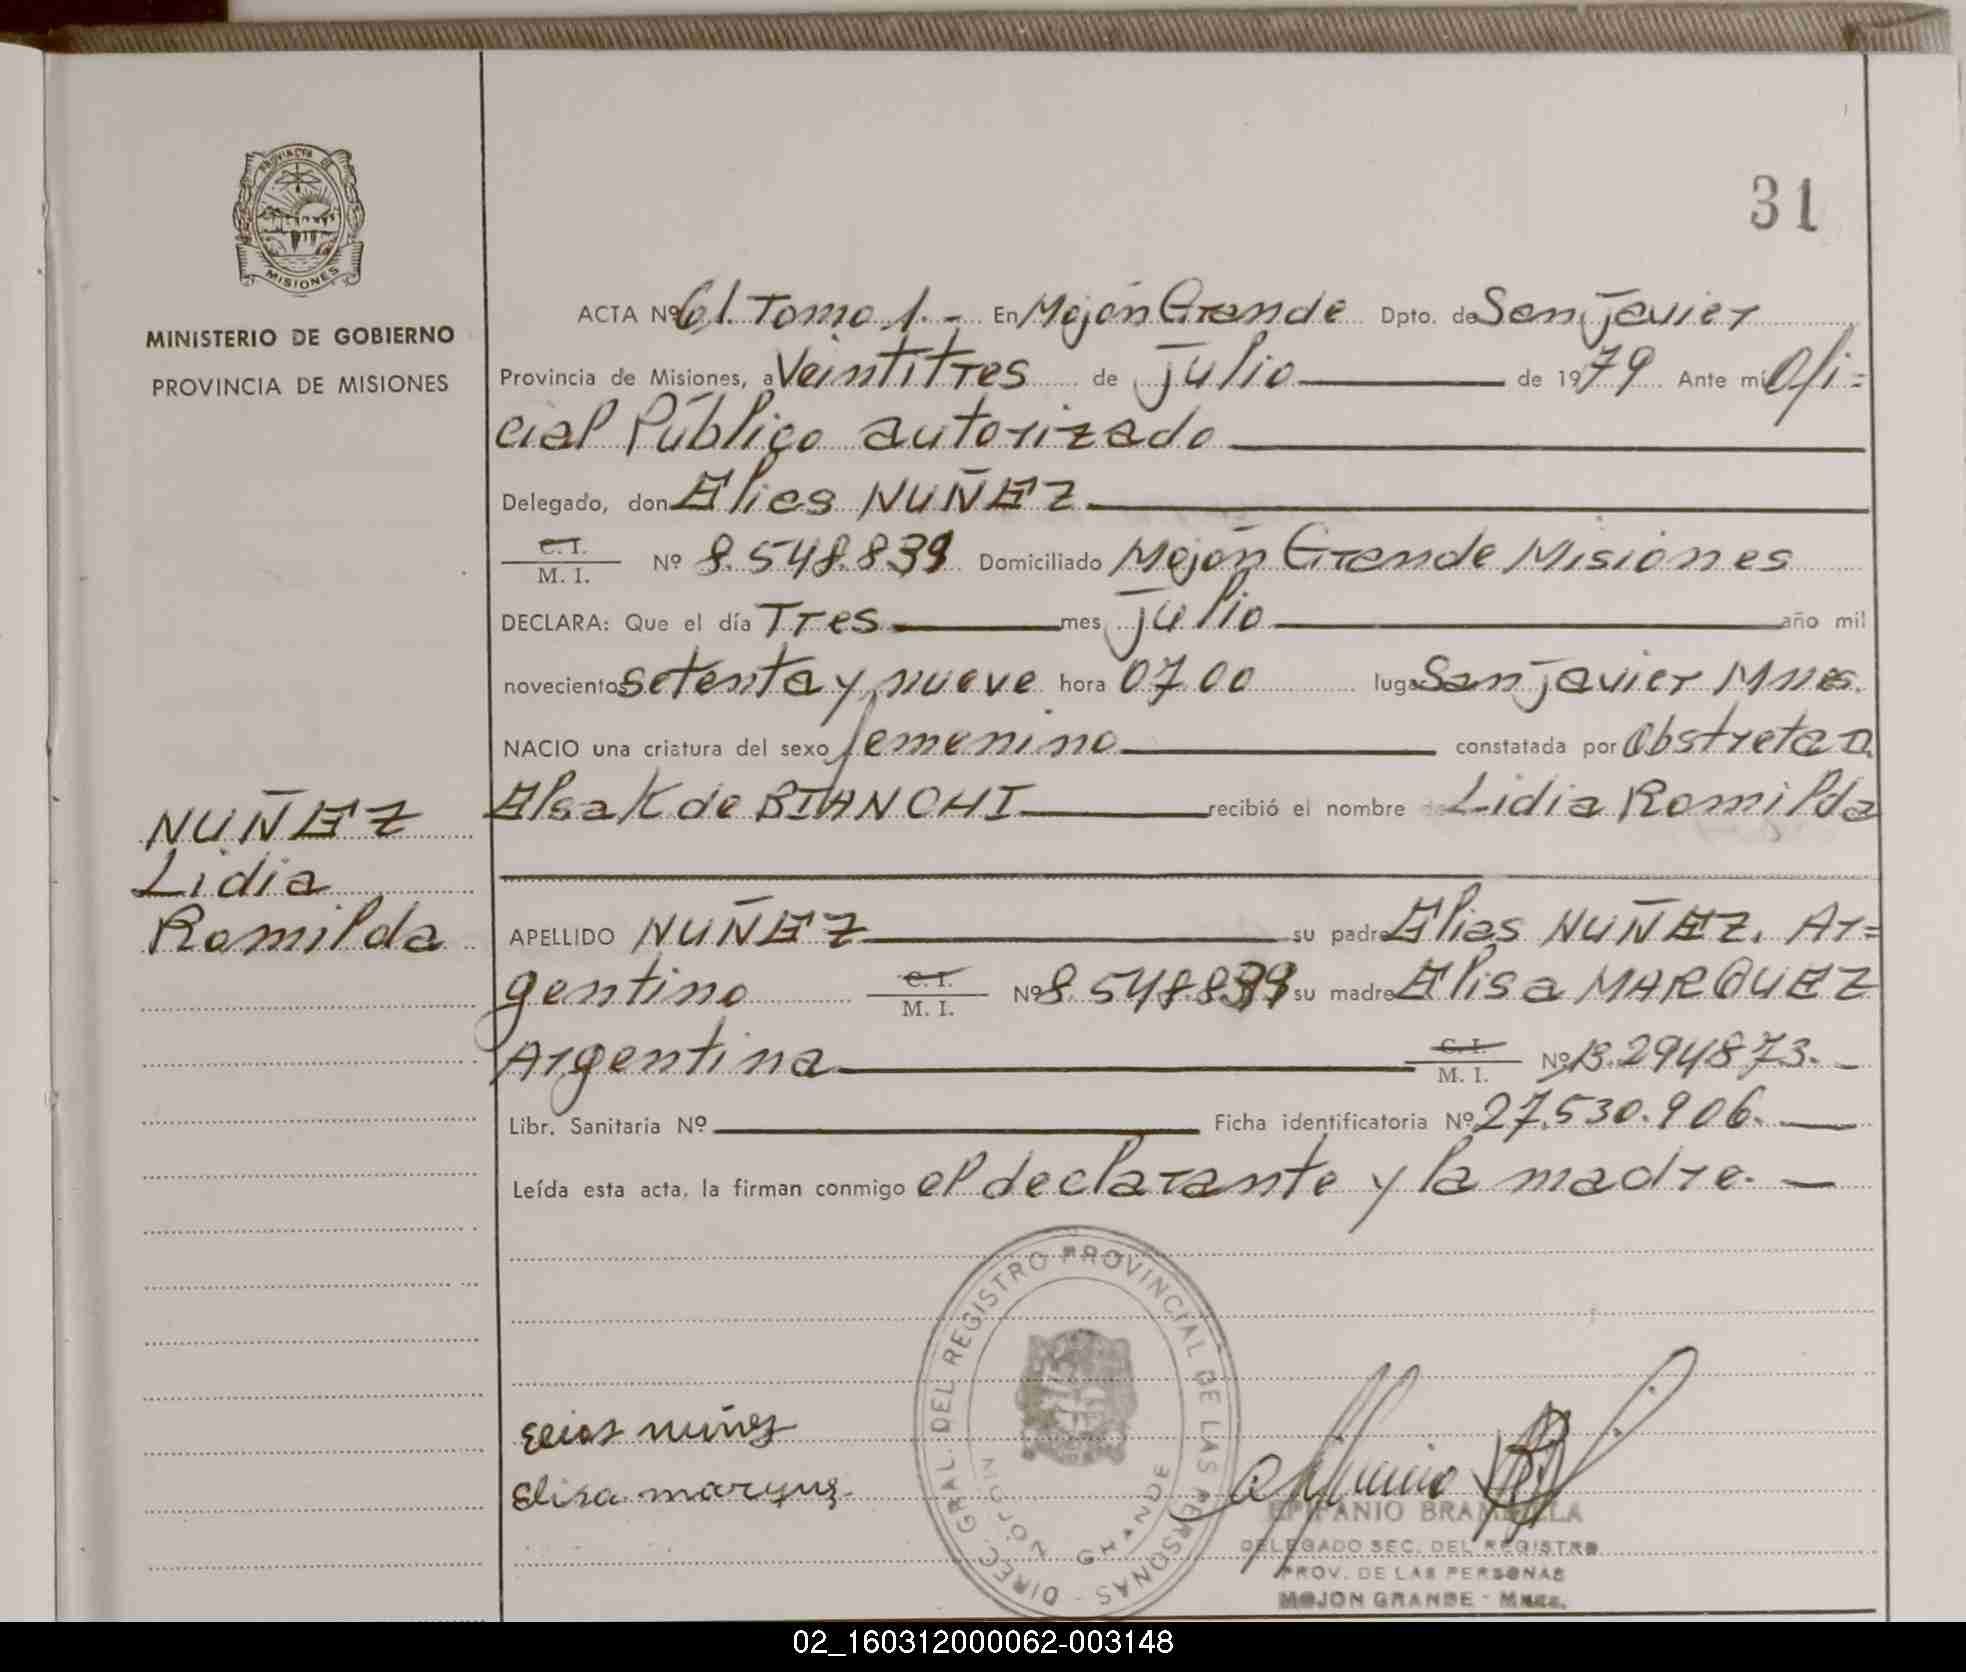 PROVINCIA DE
MISIONES
MINISTERIO DE GOBIERNO
PROVINCIA DE MISIONES
31
ACTA Nº 61. Tomo 1. - En Mojón Grande Dpto. de San Javier
Provincia de Misiones, a Veintitres de Julio de 1979 Ante mi Ofi=
cial Público autorizado
Delegado, don Elias NUÑEZ
C. I.
M. I. Nº 8.548.839 Domiciliado Mojón Grande Misiones
DECLARA: Que el día Tres mes Julio año mil
novecientos setenta y nueve hora 07.00 lugar San Javier Mnes.
NACIO una criatura del sexo femenino constatada por Obstreta D.
Elsa K de BIANCHI recibió el nombre de Lidia Romilda
NUÑEZ
Lidia
Romilda
APELLIDO NUÑEZ su padre Elias NUÑEZ. Ar=
gentino C. I.
M. I. Nº 8.548.839 su madre Elisa MARQUEZ
Argentina C. I.
M. I. Nº 13.294873. -
Libr. Sanitaria Nº Ficha identificatoria Nº 27.530.906.
Leída esta acta, la firman conmigo el declarante y la madre. -
DIREC. GRAL. DEL REGISTRO PROVINCIAL DE LAS PERSONAS -
MOJON GRANDE
Elias nuñez
Elisa marques
EPIFANIO BRAMBILLA
DELEGADO SEC. DEL REGISTRO
PROV. DE LAS PERSONAS
MOJON GRANDE - Mnes.
02_160312000062-003148